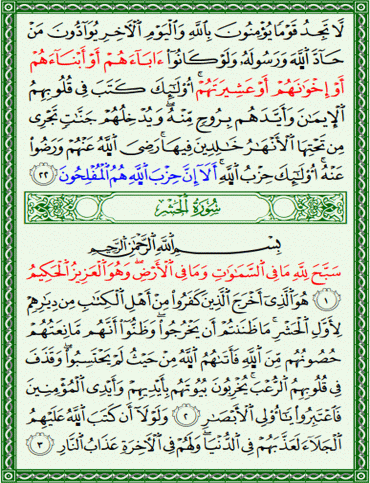 لَّا تَجِدُ قَوْمًا يُؤْمِنُونَ بِٱللَّهِ وَٱلْيَوْمِ ٱلْءَاخِرِ يُوَآدُّونَ مَنْ
حَآدَّ ٱللَّهَ وَرَسُولَهُۥ وَلَوْ كَانُوٓا۟ ءَابَآءَهُمْ أَوْ أَبْنَآءَهُمْ
أَوْ إِخْوَٰنَهُمْ أَوْ عَشِيرَتَهُمْ ۚ أُو۟لَٰٓئِكَ كَتَبَ فِى قُلُوبِهِمُ
ٱلْإِيمَٰنَ وَأَيَّدَهُم بِرُوحٍ مِّنْهُ ۖ وَيُدْخِلُهُمْ جَنَّٰتٍ تَجْرِى
مِن تَحْتِهَا ٱلْأَنْهَٰرُ خَٰلِدِينَ فِيهَا ۚ رَضِىَ ٱللَّهُ عَنْهُمْ وَرَضُوا۟
عَنْهُ ۚ أُو۟لَٰٓئِكَ حِزْبُ ٱللَّهِ ۚ أَلَآ إِنَّ حِزْبَ ٱللَّهِ هُمُ ٱلْمُفْلِحُونَ ٢٢
سُورَةُ الْحَشْرِ
بِسْمِ ٱللَّهِ ٱلرَّحْمَٰنِ ٱلرَّحِيمِ
سَبَّحَ لِلَّهِ مَا فِى ٱلسَّمَٰوَٰتِ وَمَا فِى ٱلْأَرْضِ ۖ وَهُوَ ٱلْعَزِيزُ ٱلْحَكِيمُ
١ هُوَ ٱلَّذِىٓ أَخْرَجَ ٱلَّذِينَ كَفَرُوا۟ مِنْ أَهْلِ ٱلْكِتَٰبِ مِن دِيَٰرِهِمْ
لِأَوَّلِ ٱلْحَشْرِ ۚ مَا ظَنَنتُمْ أَن يَخْرُجُوا۟ ۖ وَظَنُّوٓا۟ أَنَّهُم مَّانِعَتُهُمْ
حُصُونُهُم مِّنَ ٱللَّهِ فَأَتَىٰهُمُ ٱللَّهُ مِنْ حَيْثُ لَمْ يَحْتَسِبُوا۟ ۖ وَقَذَفَ
فِى قُلُوبِهِمُ ٱلرُّعْبَ ۚ يُخْرِبُونَ بُيُوتَهُم بِأَيْدِيهِمْ وَأَيْدِى ٱلْمُؤْمِنِينَ
فَٱعْتَبِرُوا۟ يَٰٓأُو۟لِى ٱلْأَبْصَٰرِ ٢ وَلَوْلَآ أَن كَتَبَ ٱللَّهُ عَلَيْهِمُ
ٱلْجَلَآءَ لَعَذَّبَهُمْ فِى ٱلدُّنْيَا ۖ وَلَهُمْ فِى ٱلْءَاخِرَةِ عَذَابُ ٱلنَّارِ ٣